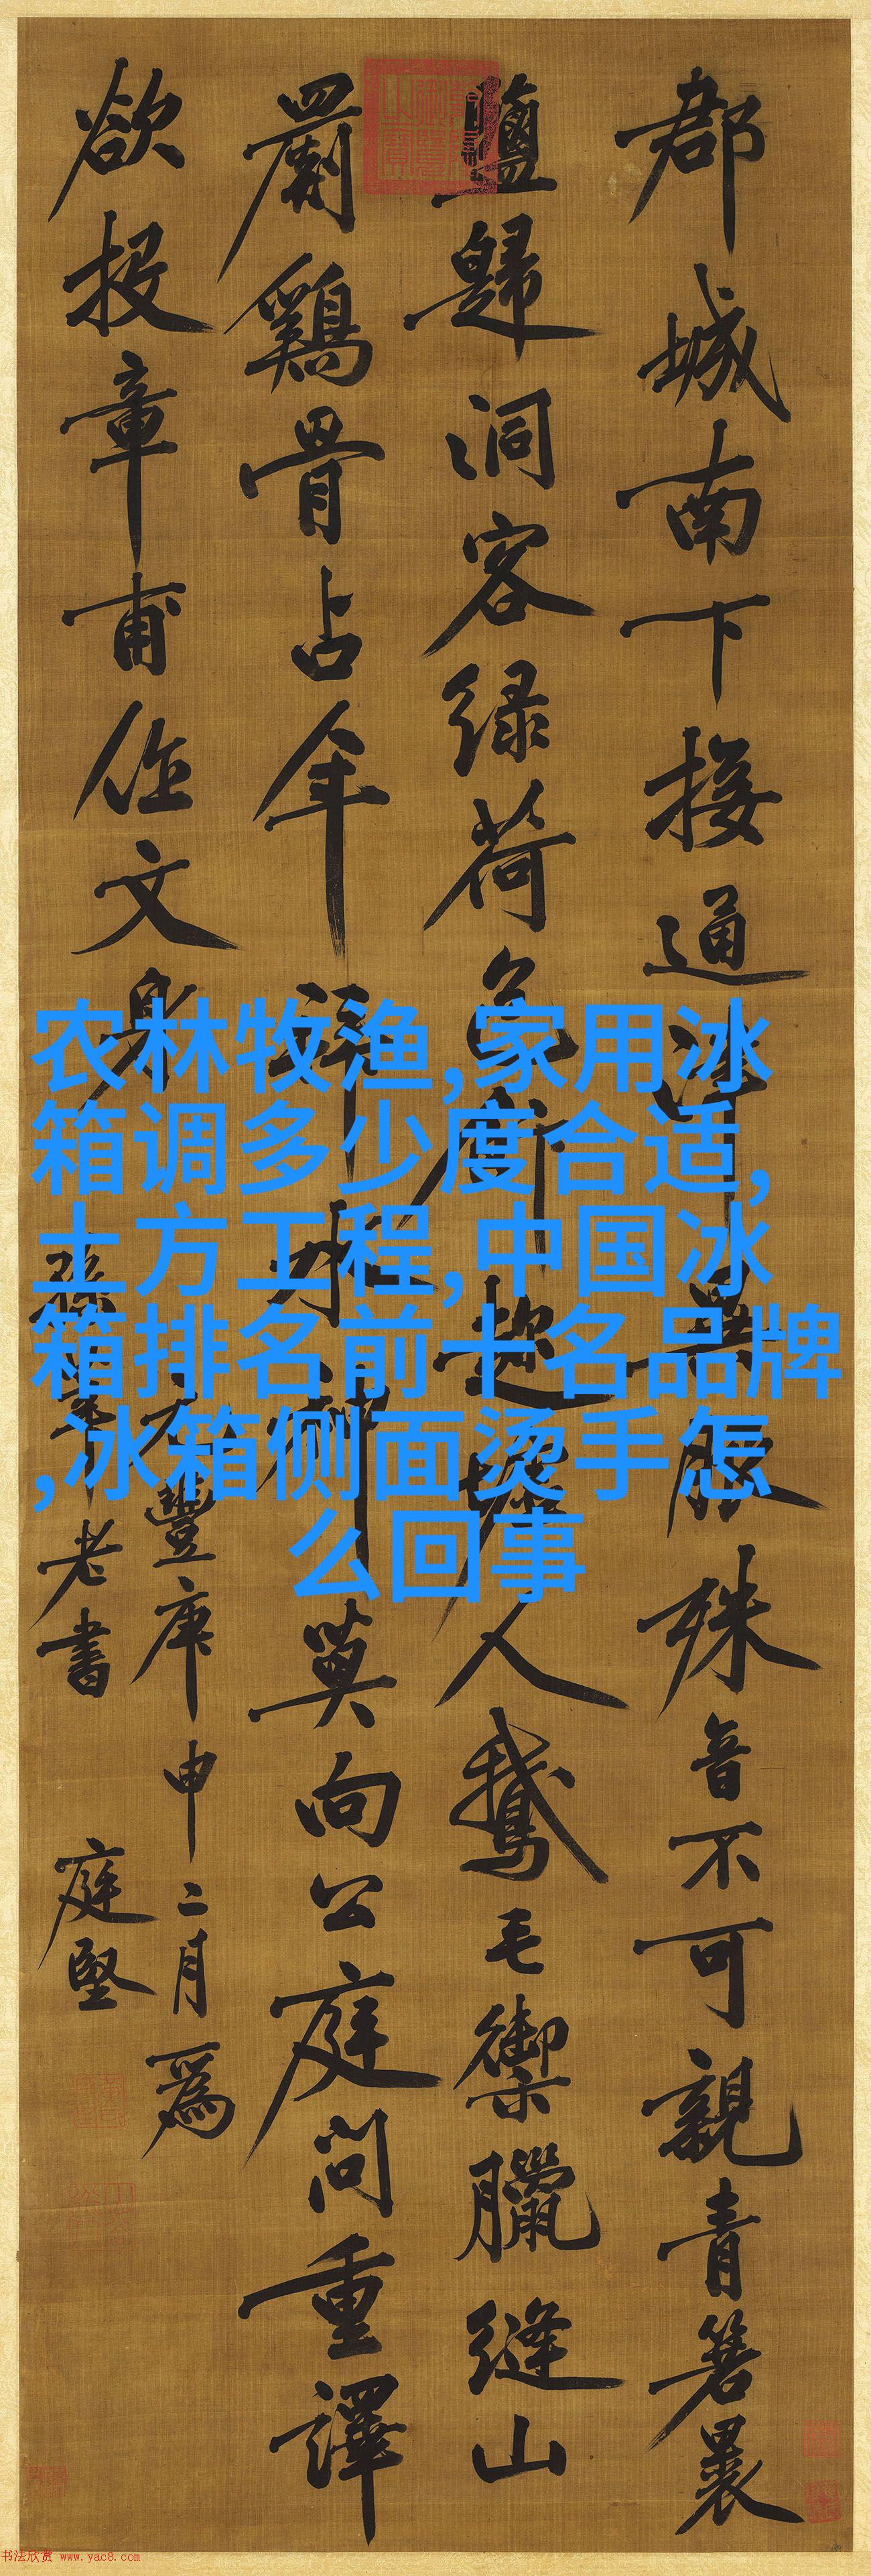 郡城南下接通津異服殊音不可親青箬裹
鹽歸洞客綠荷包飯趁墟人鵝毛御臘縫山
罽鷄骨占年拜水神莫向公庭問重譯
欲投章甫作文身
元豐庚申二月爲
孫莘老書
庭堅
农林牧渔,家用冰
箱调多少度合适,
土方工程,中国冰
箱排名前十名品牌
,冰箱侧面烫手怎
么回事
书法欣赏 www.yac8.com